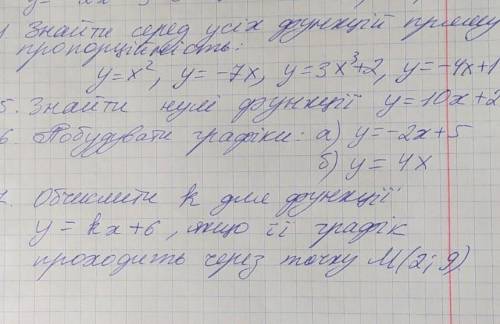 Знайти серед усіх функцій пряму
пропорційність:
y=x², y=-7x, y=3x³+2, y=-4x+1
5. Знайти нулі функції y=10x+2
6. Побудувати графіки: а) y=-2x+5
б) y=4x
7. Обчислити k для функції
y=kx+6, якщо її графік
проходить через точку M(2; 9)